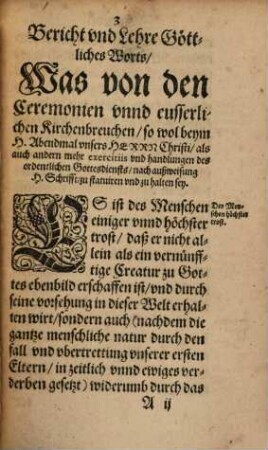 3
Bericht vnd Lehre Gött-
liches Worts/
Was von den
Ceremonien vnnd eusserli-
chen Kirchenbreuchen/ so wol beym
H. Abendmal vnsers HERRN Christi/ als
auch andern mehr exercitiis vnd handlungen des
ordentlichen Gottesdiensts/ nach außweisung
H. Schrifft/ zu statuiren vnd zu halten sey.
ES ist des Menschen
Des Men-
schen höchster
trost.
einiger vnnd höchster
trost/ daß er nicht al-
lein als ein vernünff-
tige Creatur zu Got-
tes ebenbild erschaffen ist/ vnd durch
seine vorsehung in dieser Welt erhal-
ten wirt/ sondern auch (nachdem die
gantze menschliche natur durch den
fall vnd vbertrettung vnserer ersten
Eltern/ in zeitlich vnnd ewiges ver-
derben gesetzt) widerumb durch das
A ij